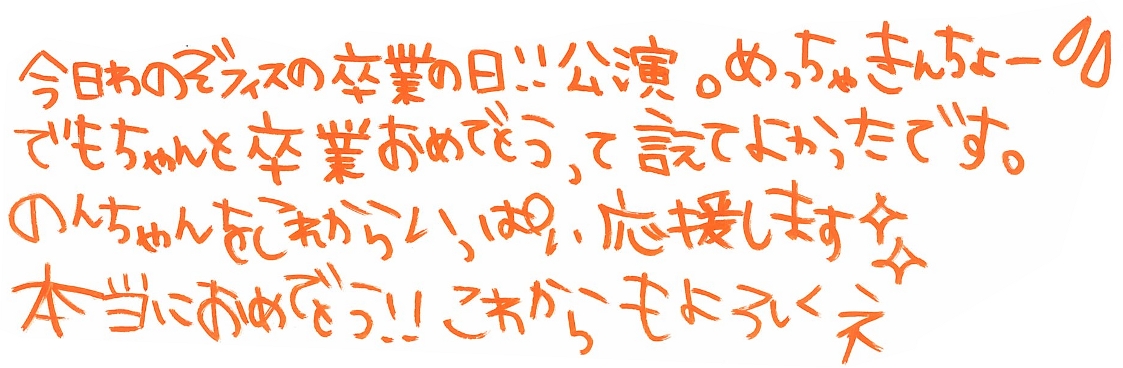 今日わのぞフィスの卒業の日!!公演。めっちゃきんちょー
でもちゃんと卒業おめでとうって言えてよかったです。
のんちゃんをこれからいっぱい応援します✧✧
本当におめでとう!!これからもよろしくネ